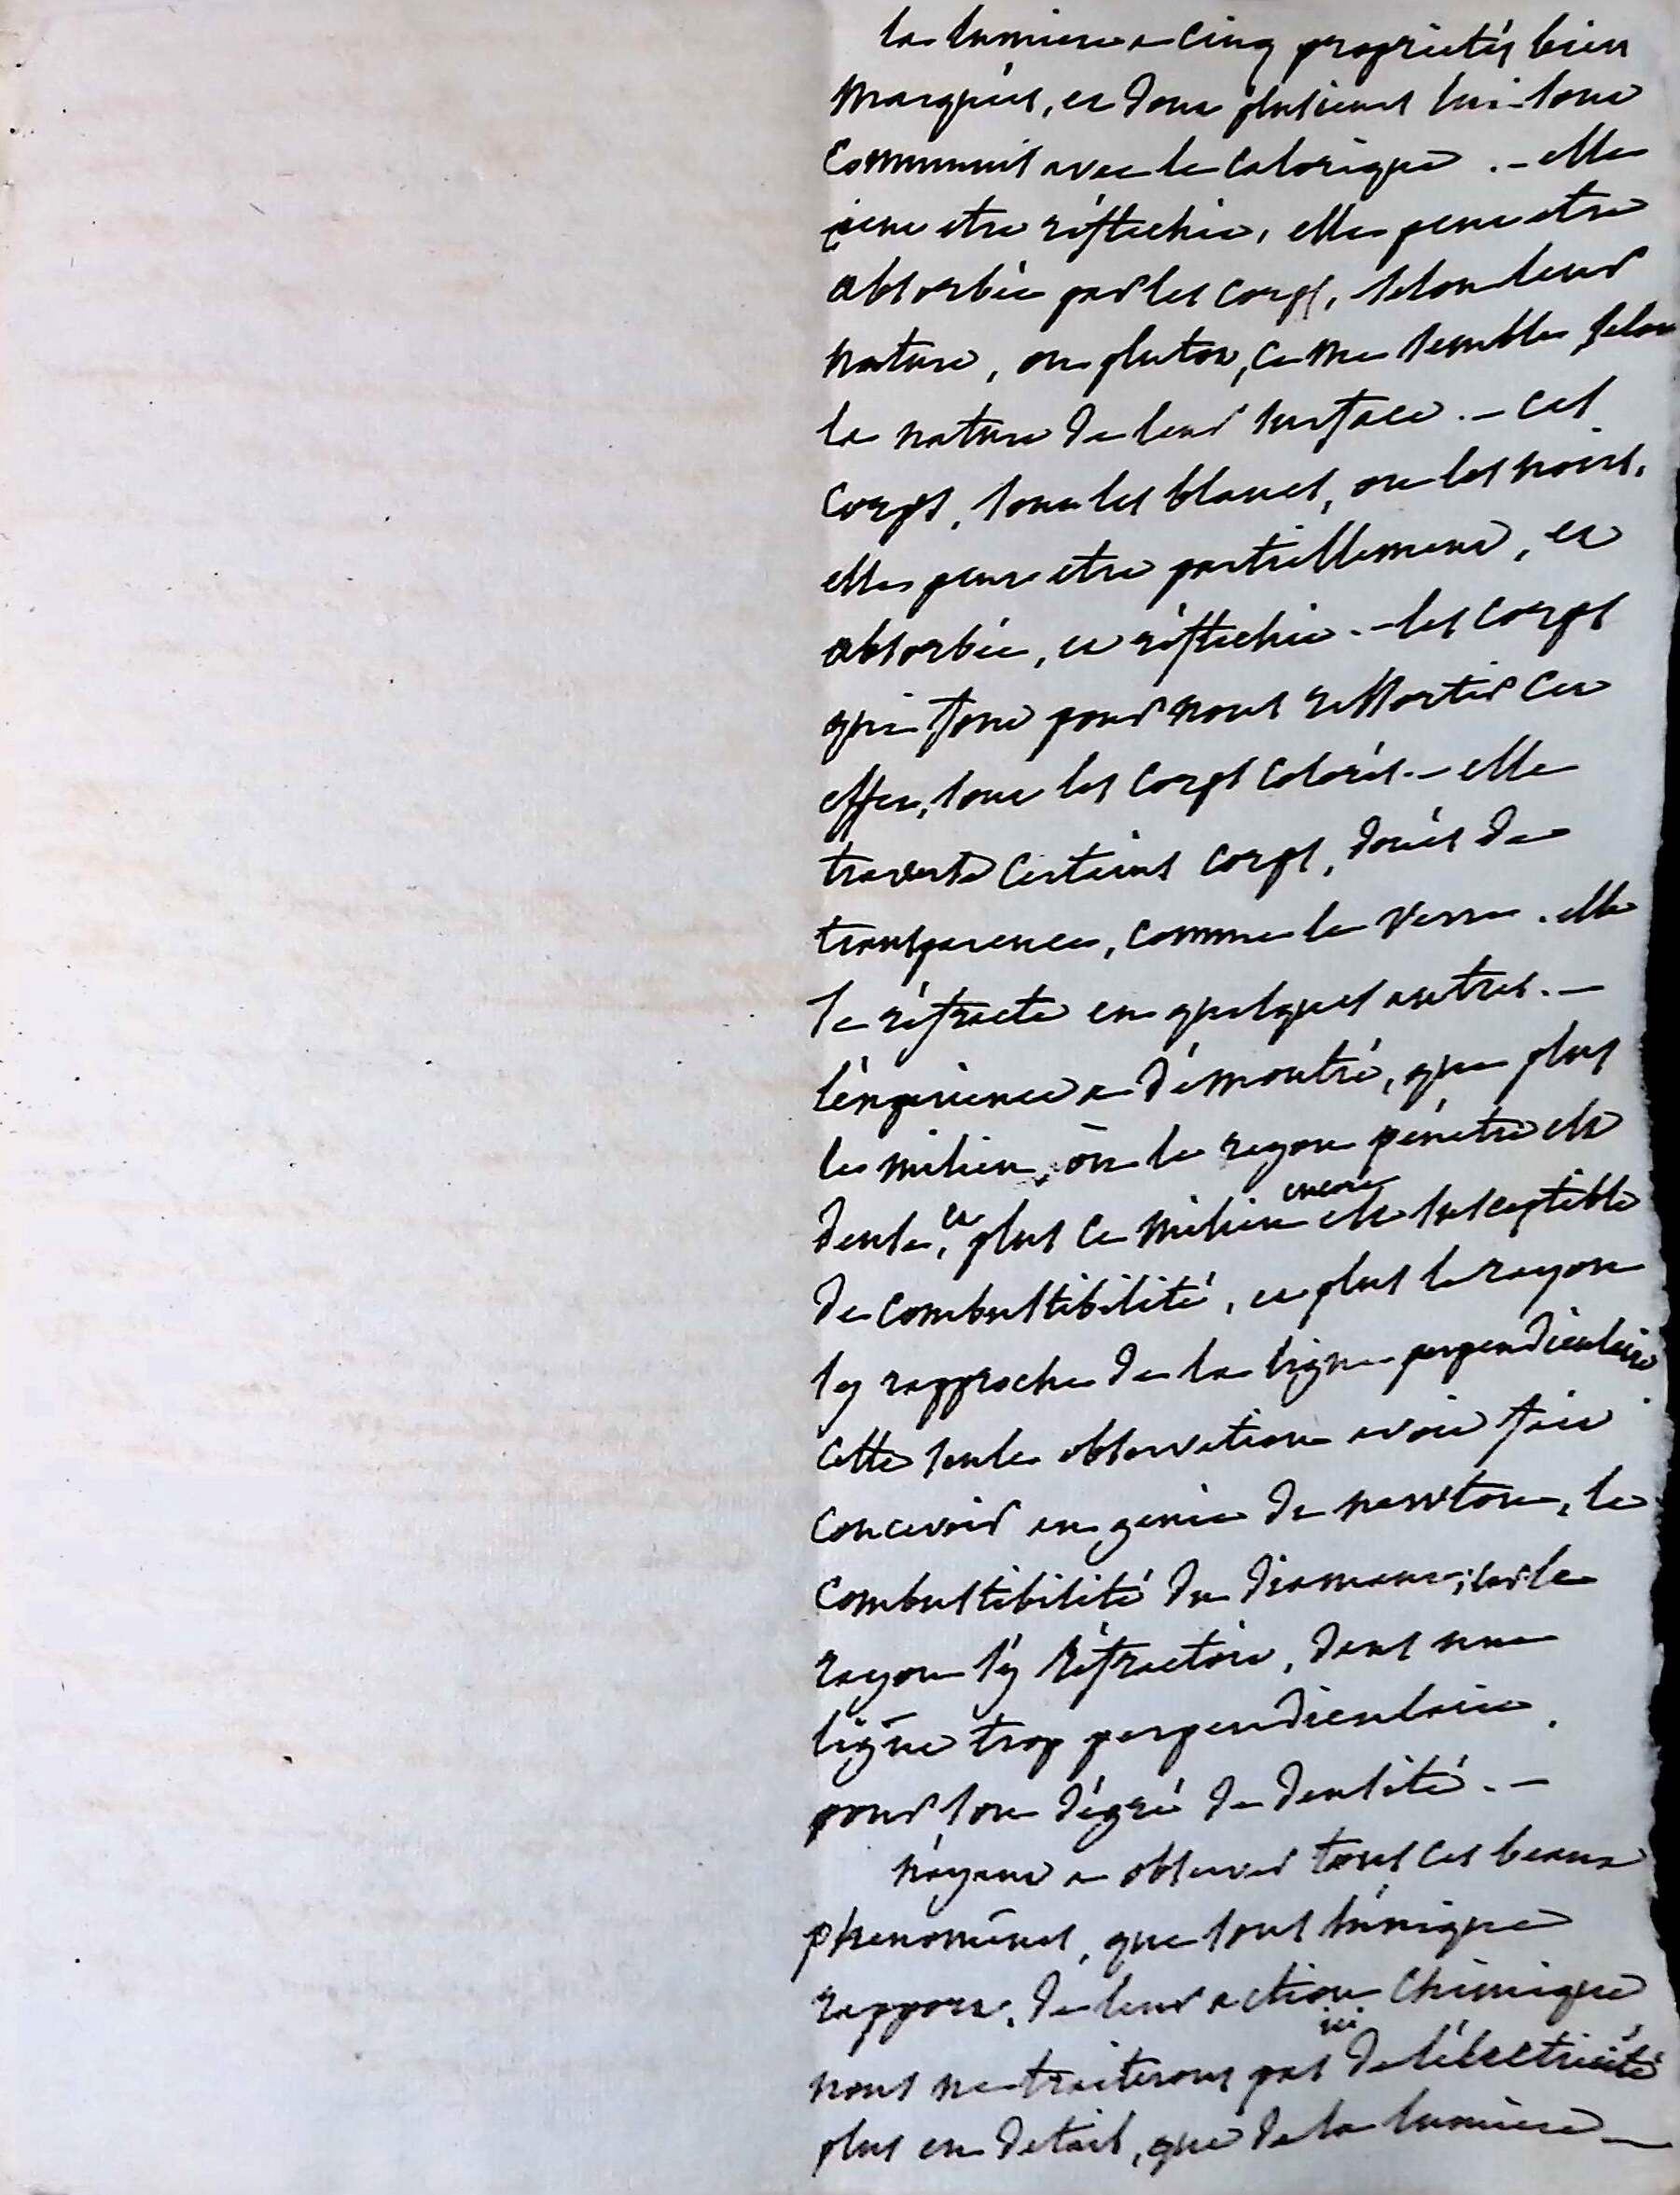 la lumiere a cinq proprietés bien
marquées, et dont plusieurs lui sont
communes avec le calorique. - elle
peut etre réflechie, elle peut etre
absorbée par les corps, selon leur
nature, ou plutot, ce me semble, selon
la nature de leur surface. - ces
corps, sont les blancs, ou les noirs.
elle peut etre partiellement, et
absorbée, et réflechie. - les corps
qui font pour nous ressortir cet
effet, sont les corps colorés. - elle
traverse certains corps, doués de
transparence, comme le verre. elle
se réfracte en quelques autres. -
l'experience a démontré, que plus
le milieu, où le rayon pénetre est
dense, et plus ce milieu encore est susceptible
de combustibilité, et plus le rayon
s'y rapproche de la ligne perpendiculaire
cette seule observation avoit fait
concevoir au genie de newton, la
combustibilité du diamant; car le
rayon s'y réfractoit, dans une
ligne trop perpendiculaire,
pour son dégré de densité. -
n'ayant a observer tous ces beaux
phenomènes, que sous l'unique
rapport, de leur action chimique,
nous ne traiterons pas ici de l'électricité
plus en detail, que de la lumiere -